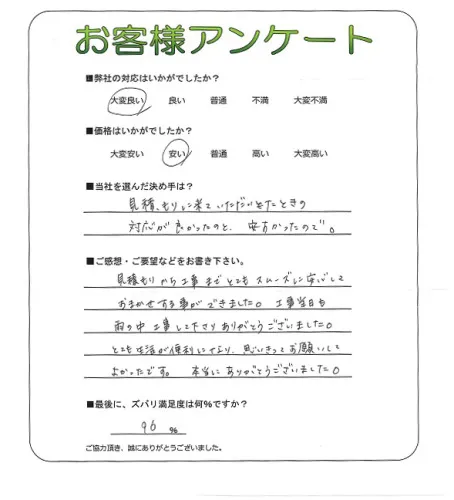 お客様アンケート
■弊社の対応はいかがでしたか？
大変良い 良い 普通 不満 大変不満
■価格はいかがでしたか？
大変安い 安い 普通 高い 大変高い
■当社を選んだ決め手は？
見積もりに来ていただいたときの
対応が良かったのと、安かったので。
■ご感想・ご要望などをお書き下さい。
見積もりから工事までとてもスムーズに安心して
おまかせする事ができました。工事当日も
雨の中工事して下さりありがとうございました。
とても生活が便利になり、思いきってお願いして
よかったです。本当にありがとうございました。
■最後に、ズバリ満足度は何%ですか？
96 %
ご協力頂き、誠にありがとうございました。